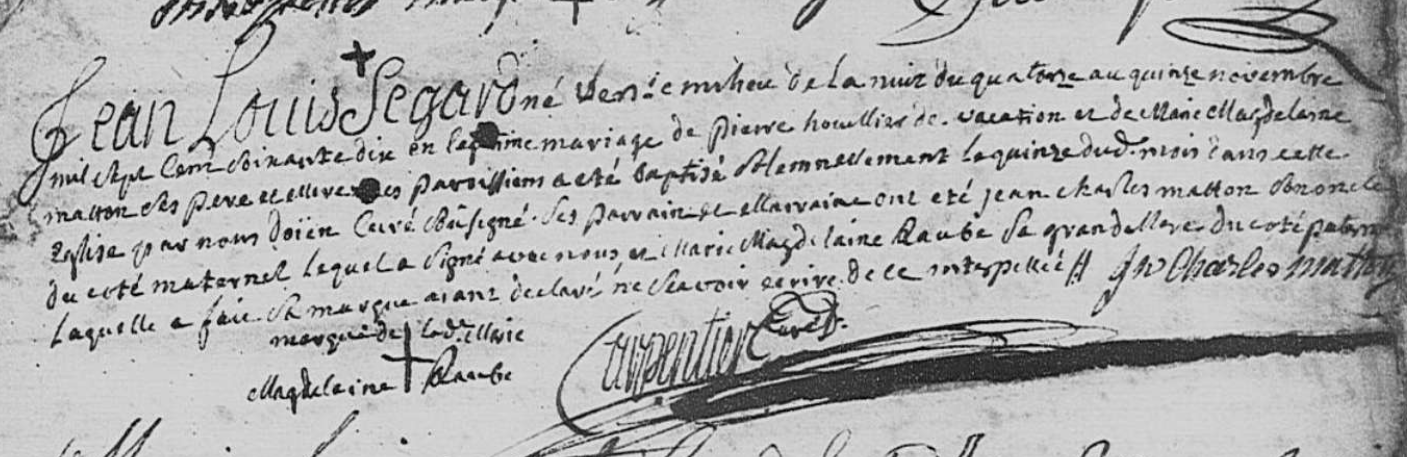 Jean Louis Segard né vers le milieu de la nuit du quatorze au quinze novembre
mil sept cent soixante dix en légitime mariage de pierre houillier de vacation et de Marie Magdelaine
matton ses pere et Mere mes paroissiens a eté baptisé solemnellement le quinze dud. mois dans cette
Eglise par nous doïen Curé sousigné. Ses parrain et Marraine ont eté jean charles matton son oncle
du coté maternel lequel a signé avec nous et Marie Magdelaine Raube sa grand Mere du coté patern
Laquelle a fait sa marque aiant declaré ne sçavoir ecrire de ce interpellée // Jn Charles matton
marque de lad.e Marie
Magdelaine Raube
Carpentier Curé D.